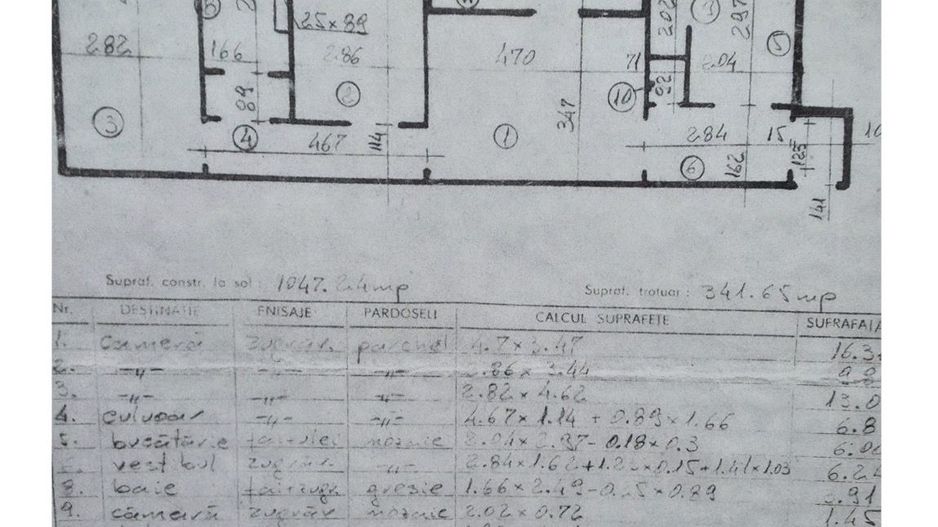 25×89
202
297
2.82
166
2.86
470
71
2.04
5
89
2
10
3
4
467
114
1
347
2.84
15
6
162
125
141
Supraf. constr. la sol : 1047.24mp
Supraf. trotuar : 341.65mp
Nr. DESTINAȚIE FINISAJE PARDOSELI CALCUL SUPRAFEȚE SUPRAFAȚA
1. cameră zugrăv. parchet 4.7×3.47 16.3
2. -〃- -〃- -〃- 2.86×3.44
3. -〃- -〃- -〃- 2.82×4.62 13.0
4. culuoar -〃- -〃- 4.67×1.14 + 0.89×1.66 6.8
5. bucătărie mozaic 2.04×2.97-0.18×0.3 6.00
vestibul zugrăv. -〃- 2.84×1.62+1.25×0.15+1.41×1.03 6.24
8. baie gresie 1.66×2.49-0.25×0.89 .91
9. cămară zugrăv mozaic 2.02×0.72 1.45